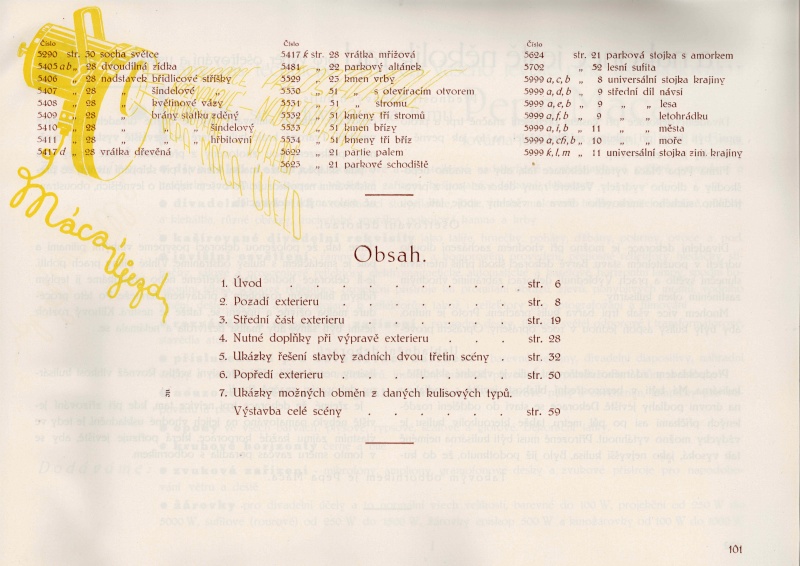 Číslo
5290 str. 30 socha světce
5405 a b „ 28 dvoudílná zídka
5406 „ 28 nadstavek břidlicové stříšky
5407 „ 28 „ šindelové „
5408 „ 28 „ květinové vázy
5409 „ 28 „ brány statku zděný
5410 „ 28 „ „ „ šindelový
5411 „ 28 „ „ „ hřbitovní
5417 d „ 28 vrátka dřevěná
Číslo
5417 k str. 28 vrátka mřížová
5481 „ 22 parkový altánek
5529 „ 23 kmen vrby
5530 „ 51 „ s otevíracím otvorem
5531 „ 51 „ stromu
5532 „ 51 kmeny tří stromů
5533 „ 51 kmen břízy
5534 „ 51 kmeny tří bříz
5622 „ 21 partie palem
5623 „ 21 parkové schodiště
Číslo
5624 str. 21 parková stojka s amorkem
5702 „ 52 lesní sufita
5999 a, c, b „ 8 universální stojka krajiny
5999 a, d, b „ 9 střední díl návsi
5999 a, e, b „ 9 „ „ lesa
5999 a, f, b „ 9 „ „ letohrádku
5999 a, i, b „ 11 „ „ města
5999 a, ch, b „ 10 „ „ moře
5999 k, l, m „ 11 universální stojka zim. krajiny
Máca Újezd
Obsah.
1. Úvod . . . . . . . . . . str. 6
2. Pozadí exterieru . . . . . . . str. 8
3. Střední část exterieru . . . . . . str. 19
4. Nutné doplňky při výpravě exterieru . . str. 28
5. Ukázky řešení stavby zadních dvou třetin scény . str. 32
6. Popředí exterieru . . . . . . . str. 50
7. Ukázky možných obměn z daných kulisových typů.
Výstavba celé scény . . . . . str. 59
101